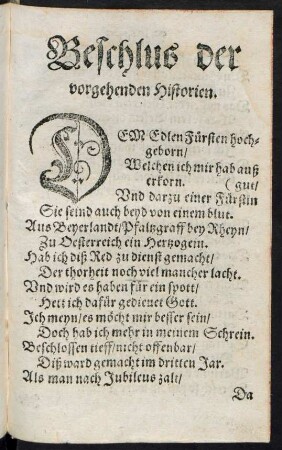 Beschlus der
vorgehenden Historien.
DEM Edlen Fürsten hoch-
geborn/
Welchen ich mir hab auß
erkorn. (gut/
Vnd darzu einer Fürstin
Sie seind auch beyd von einem blut.
Aus Beyerlandt/Pfaltzgraff bey Rheyn/
Zu Oesterreich ein Hertzogein.
Hab ich diß Red zu dienst gemacht/
Der thorheit noch viel mancher lacht.
Vnd wird es haben für ein spott/
Hett ich dafür gedienet Gott.
Ich meyn/es möcht mir besser sein/
Doch hab ich mehr in meinem Schrein.
Beschlossen tieff/nicht offenbar/
Diß ward gemacht im dritten Jar.
Als man nach Jubileus zalt/
Da